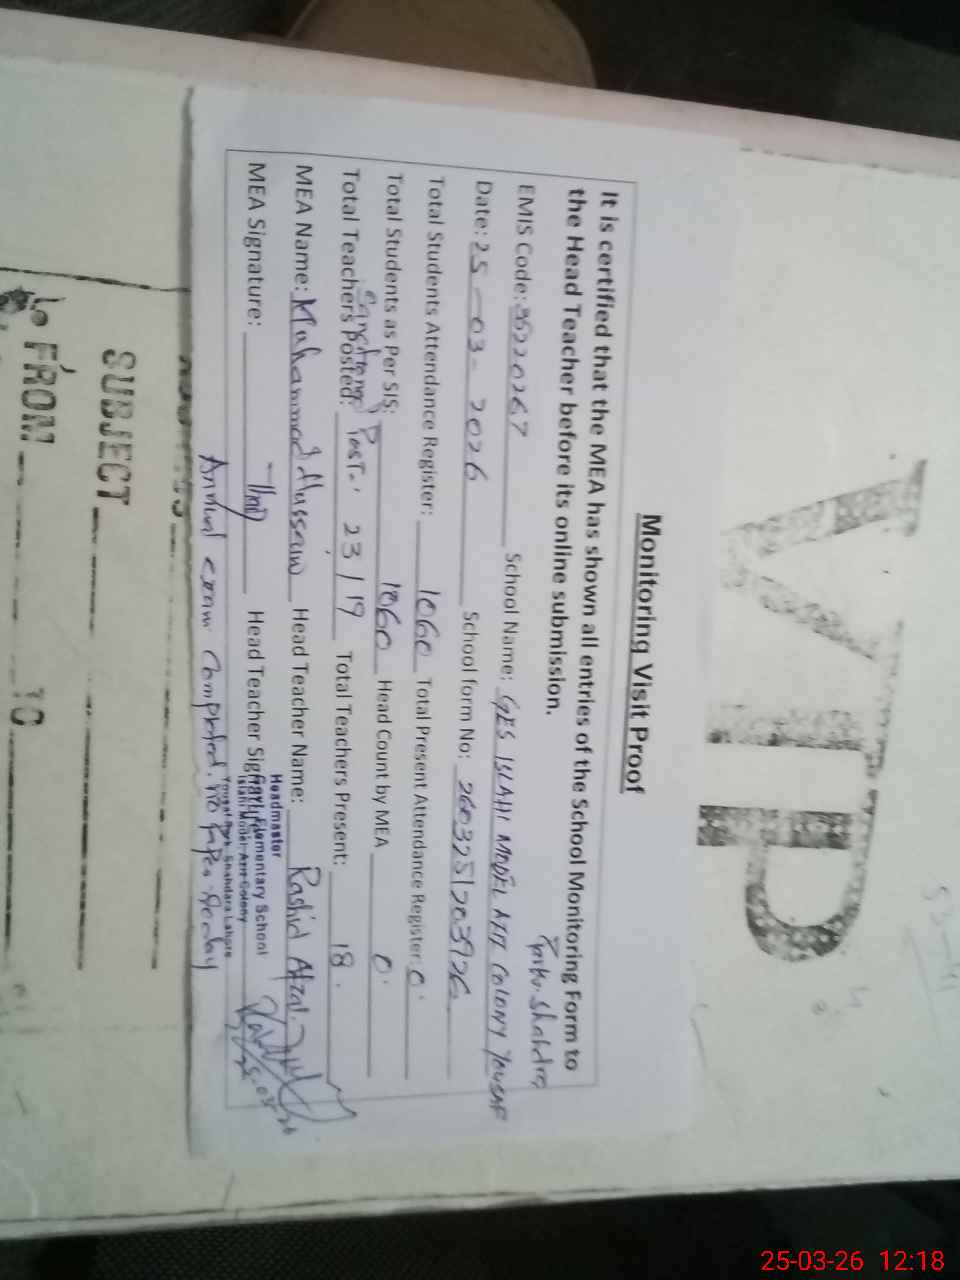 VIP
Monitoring Visit Proof
It is certified that the MEA has shown all entries of the School Monitoring Form to
the Head Teacher before its online submission.
EMIS Code: 35220267 School Name: GES ISLAHI MODEL AZIZ COLONY YOUSAF
Park Shahdra
Date: 25-03-2026 School form No:
Total Students Attendance Register: 1060 Total Present Attendance Register: 0
Total Students as Per SIS: 1060 Head Count by MEA 0
Sanctioned Post
Total Teachers Posted: 23/19 Total Teachers Present: 18
MEA Name: Muhammad Hassan Head Teacher Name: Rashid Afzal
MEA Signature: Head Teacher Signature:
Headmaster
Elementary School
Islahi Model Aziz Colony
Yousaf Park Shahdara Lahore
25-03-26
Annual exam completed. no paper today
SUBJECT
FROM TO
25-03-26 12:18